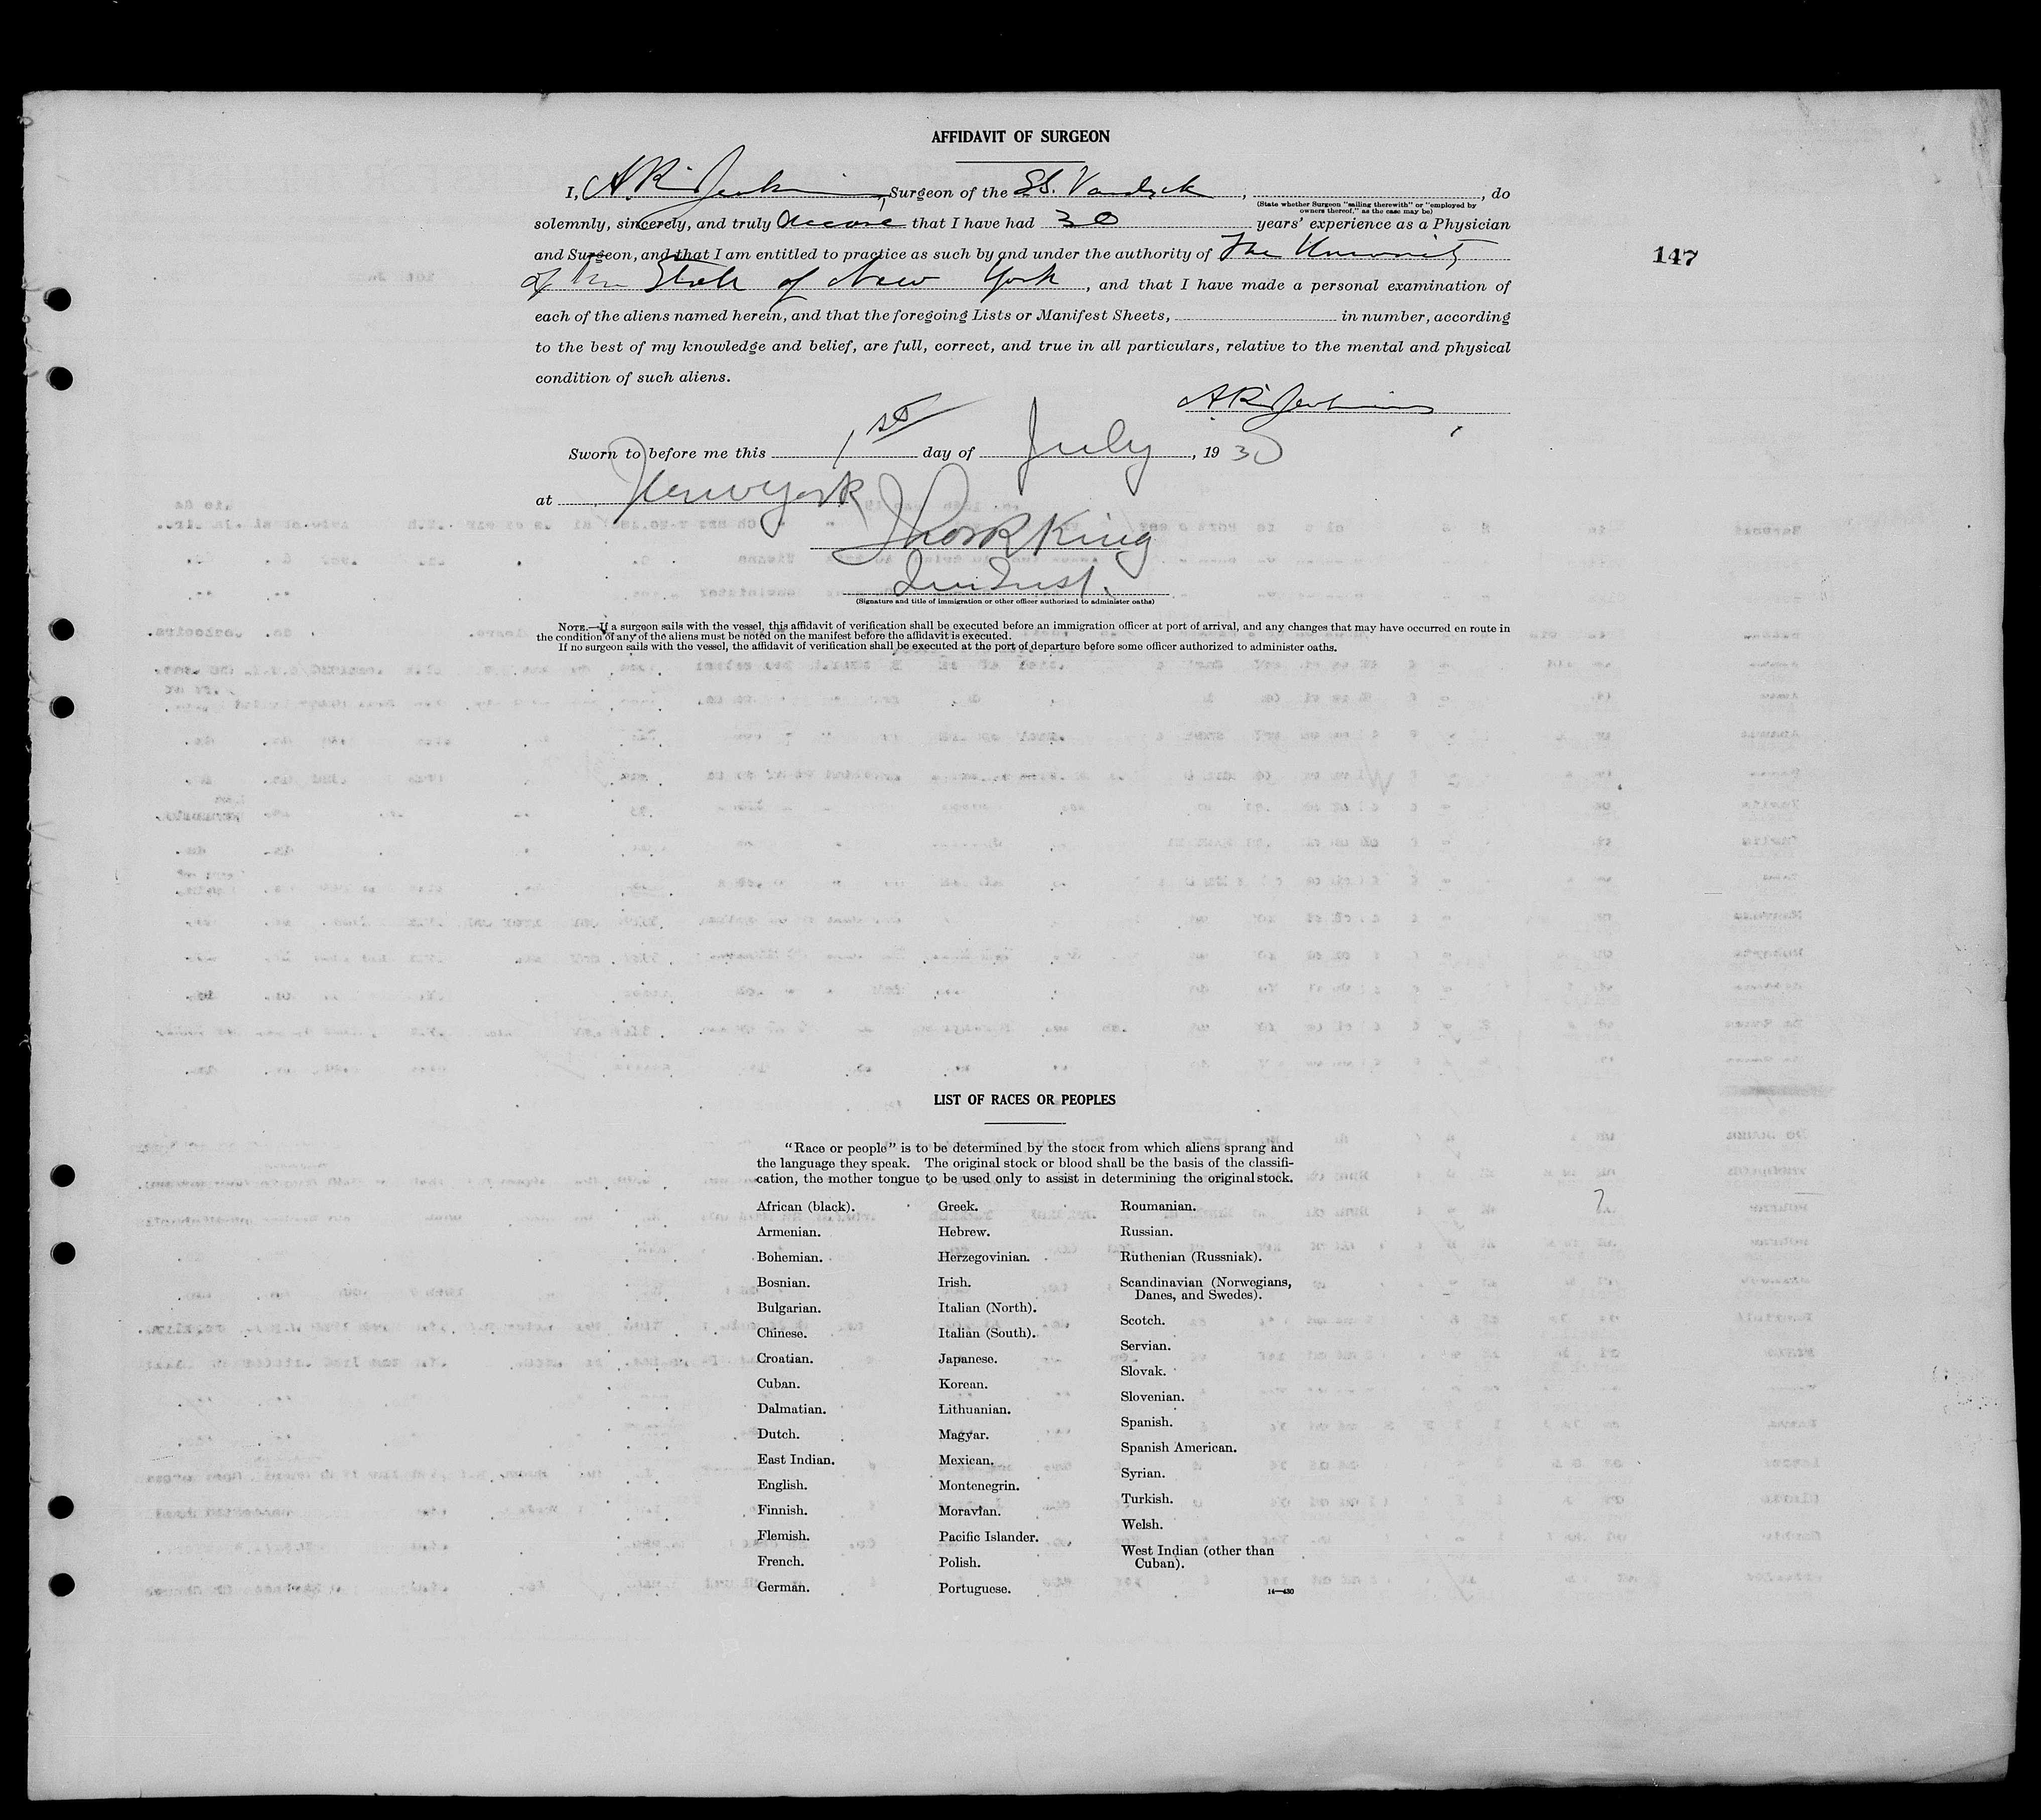 AFFIDAVIT OF SURGEON
I, A. R. Jenkins, Surgeon of the SS. Vandyck, , do
(State whether Surgeon "sailing therewith" or "employed by
owners thereof," as the case may be)
solemnly, sincerely, and truly that I have had 30 years' experience as a Physician
and Surgeon, and that I am entitled to practice as such by and under the authority of The University
of the State of New York, and that I have made a personal examination of
147
each of the aliens named herein, and that the foregoing Lists or Manifest Sheets, in number, according
to the best of my knowledge and belief, are full, correct, and true in all particulars, relative to the mental and physical
condition of such aliens.
A. R. Jenkins
Sworn to before me this 1st day of July, 1930
at New York
King
(Signature and title of immigration or other officer authorized to administer oaths)
NOTE.—If a surgeon sails with the vessel, this affidavit of verification shall be executed before an immigration officer at port of arrival, and any changes that may have occurred en route in
the condition of any of the aliens must be noted on the manifest before the affidavit is executed.
If no surgeon sails with the vessel, the affidavit of verification shall be executed at the port of departure before some officer authorized to administer oaths.
LIST OF RACES OR PEOPLES
"Race or people" is to be determined by the stock from which aliens sprang and
the language they speak. The original stock or blood shall be the basis of the classifi-
cation, the mother tongue to be used only to assist in determining the original stock.
African (black).
Armenian.
Bohemian.
Bosnian.
Bulgarian.
Chinese.
Croatian.
Cuban.
Dalmatian.
Dutch.
East Indian.
English.
Finnish.
Flemish.
French.
German.
Greek.
Hebrew.
Herzegovinian.
Irish.
Italian (North).
Italian (South).
Japanese.
Korean.
Lithuanian.
Magyar.
Mexican.
Montenegrin.
Moravian.
Pacific Islander.
Polish.
Portuguese.
Roumanian.
Russian.
Ruthenian (Russniak).
Scandinavian (Norwegians,
Danes, and Swedes).
Scotch.
Servian.
Slovak.
Slovenian.
Spanish.
Spanish American.
Syrian.
Turkish.
Welsh.
West Indian (other than
Cuban).
14—430